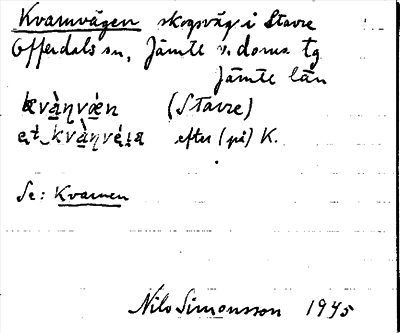 Kvarnvägen skogsväg i Stavre
Offerdals sn, Jämte v. doms. tg
Jämte län
(Stavre)
efter (på) K.
Se: Kvarnen
Nils Simonsson 1945